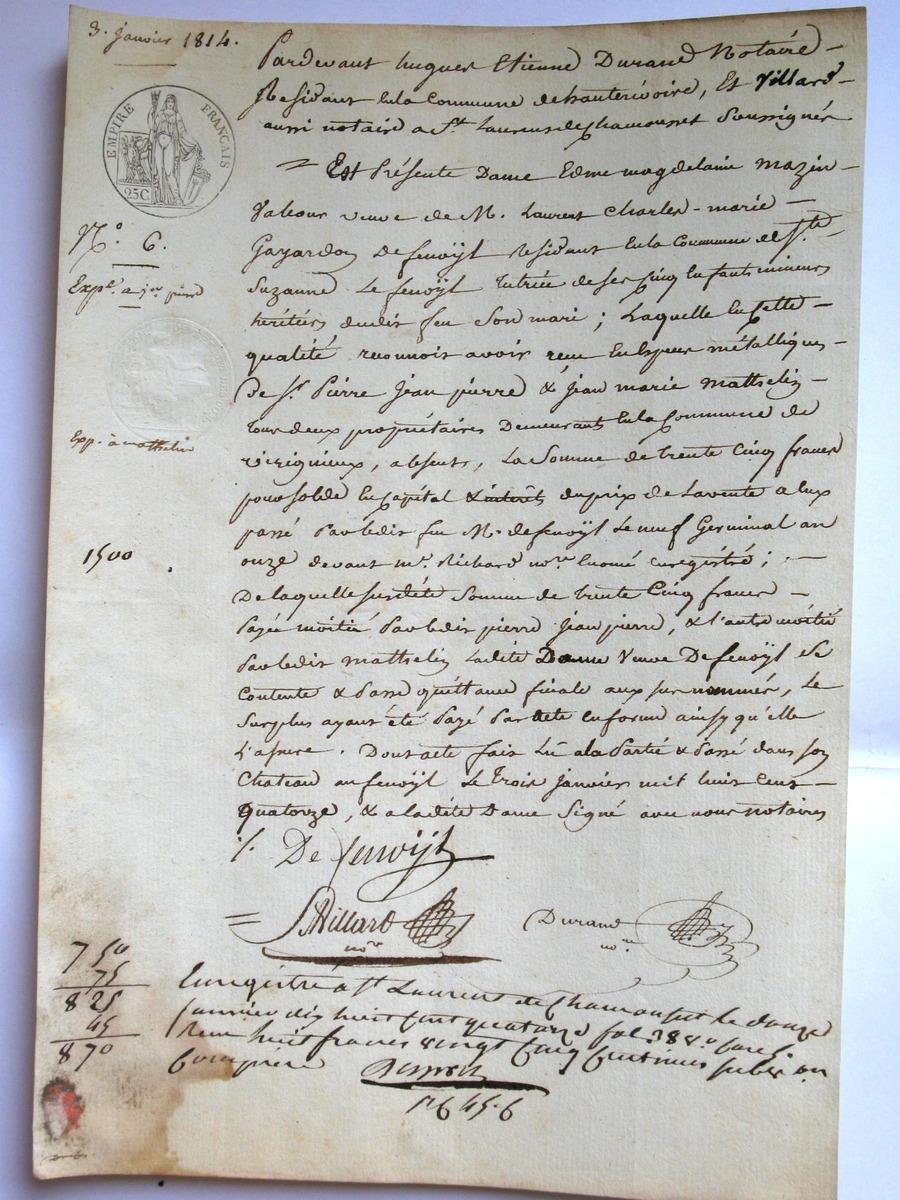 3. Janvier 1814.
EMPIRE FRANÇAIS
25C
N.o 6.
Exp.e a j.n pierre
Exp. à mathelin
1500
Pardevant hugues Etienne Durand Notaire
Residant en la Commune de hauterivoire, Et Villard
aussi notaire a St. Laurent de Chamousset Soussignés
Est Présente Dame Edme magdelaine mazin
Valeour veuve de M. Laurent Charles-marie
Gayardon De fenoÿl residant en la Commune de Ste
Suzanne Le fenoÿl tutrice de ses Cinq Enfants mineurs
heritiers dudit feu Son mari ; Laquelle en Cette
qualité reconnoit avoir reçu en Especes métalliques
De Sr. Pierre Jean pierre & Jean marie Mathelin
tous deux propriétaires Demeurants en la Commune de
virigneux, absents, La Somme de trente Cinq francs
pour Solde en Capital & intérêts du prix de La vente a Eux
passé Par ledit feu M. de fenoÿl Le neuf Germinal an
onze devant me. Richard nore. Enomé enregistré ;
De laquelle susdite Somme de trente Cinq francs
Payée moitié Par ledit pierre Jean pierre, & l'autre moitié
Par ledit Mathelin Ladite Dame Veuve De fenoÿl Se
Contente & Passe quittance finale aux sus nommés, Le
Surplus ayant été Payé Par acte en forme ainsy qu'elle
L'assure. Dont acte fait Lu a la Partie & Passé dans son
Chateau au fenoÿl Le Trois Janvier mil huit Cent
quatorze, & a ladite Dame Signé avec nous notaires
De fenoÿl
Villard
nore
Durand
nore
7 50
75
8 25
45
8 70
Enregistré a St. Laurent de Chamousset le douze
Janvier dix huit Cent quatorze fol. 38 vo. Case
Reçu huit francs vingt Cinq Centimes subv on
Comprise